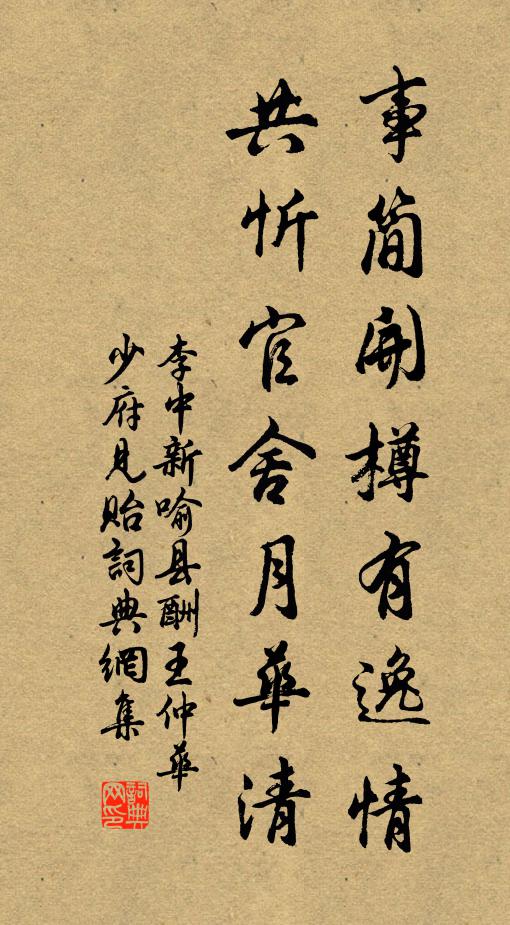 事简開樽有逸情
共忻官舍月華清
李中新喻县酬王仲華
少府見貽詞典網集
詞典网印